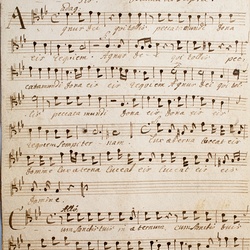 Adag.
Agnus dei qui tollis peccata mundi dona
eis requiem Agnus dei qui tollis pec
cata mundi dona eis eis requiem Agnus dei qui tollis
peccata mundi dona eis dona eis
requiem sempiternam Lux æterna luceat eis
domine Lux æterna luceat eis luceat eis
Domine
cum sanctis tuis in æternum cum sanctis tuis